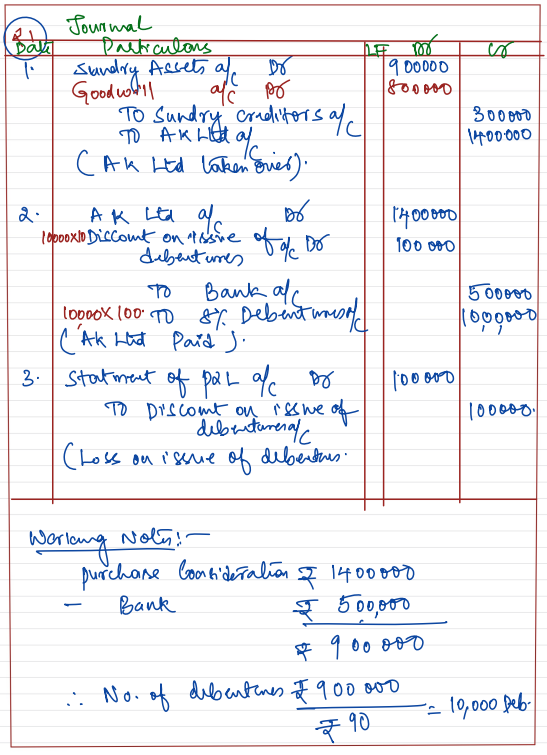 21
Journal
Date Particulars LF Dr Cr
1. Sundry Assets a/c Dr 900000
Goodwill a/c Dr 800000
To Sundry creditors a/c 300000
To AK Ltd a/c 1400000
(AK Ltd taken over).
2. AK Ltd a/c Dr 1400000
10000x10 Discount on issue of a/c Dr 100 000
debentures
To Bank a/c 500000
10,000X100. To 8% Debentures a/c 10,00,000
(AK Ltd Paid).
3. Statment of P&L a/c Dr 100000
To Discount on issue of 100000.
debentures a/c
(Loss on issue of debentures.
Working Notes:-
purchase Consideration ₹ 1400000
- Bank ₹ 500,000
₹ 900000
∴ No. of debentures ₹ 900 000
= 10,000 Deb.
₹ 90